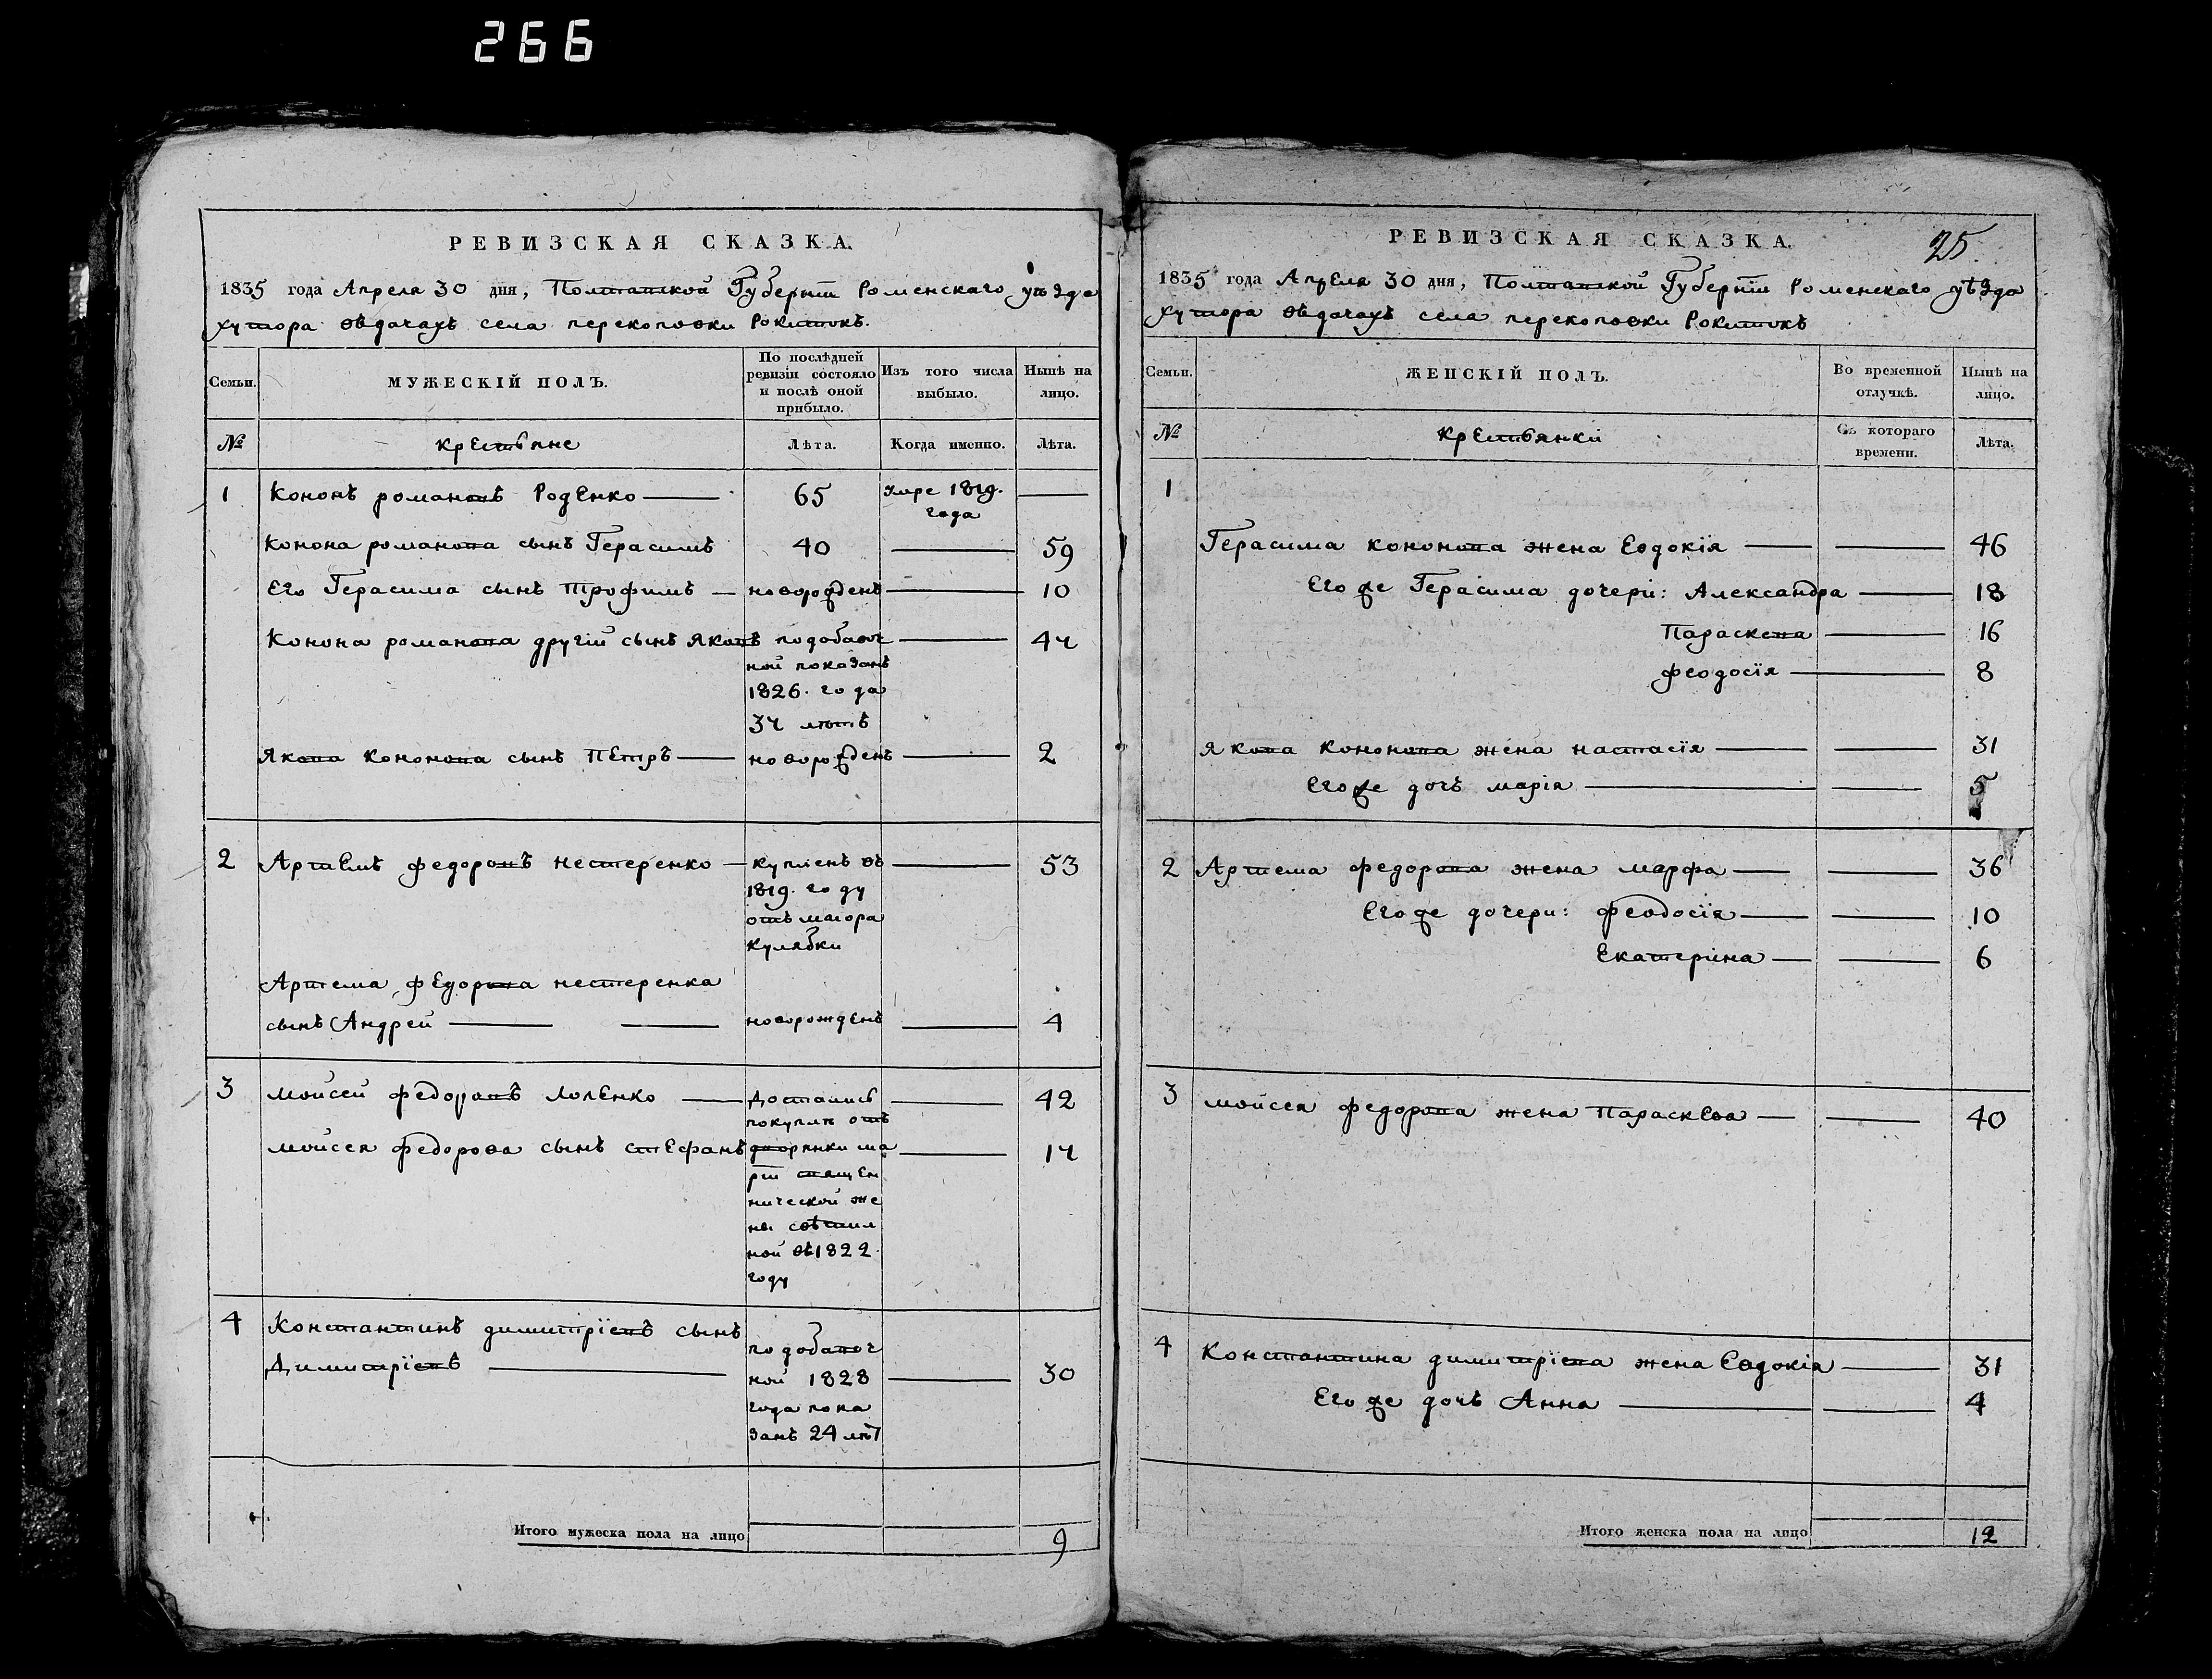 266
РЕВИЗСКАЯ СКАЗКА.
1835 года Апреля 30 дня, Полтавской Губернїи Роменскаго уѣзда
хутора вѣдачахъ села перекоповки Рокитокъ.
Семьи.
МУЖЕСКІЙ ПОЛЪ.
По послѣдней ревизіи состояло и послѣ оной прибыло.
Изъ того числа выбыло.
Нынѣ на лицо.
№
крестьяне
Лѣта.
Когда именно.
Лѣта.
1 Кононъ романовъ Роденко 65 умре 1819. года
Конона романова сынъ Герасимъ 40 59
Его Герасима сынъ Трофимъ новорожденъ 10
Конона романова другїй сынъ Яковъ подобавоч
ной показанъ
1826. года
34 лѣтъ
44
Якова Кононова сынъ Петръ новорожденъ 2
2 Артемъ федоровъ нестеренко купленъ въ
1819. году
отъ маіора
Кулябки
53
Артема федорова нестеренка
сынъ Андрей новорожденъ 4
3 Мойсей федоровъ Лоленко 42
мойсея федорова сынъ стефанъ 14
Достались
покуплѣ отъ
дворянки ма
рїи священ
нической же
ны свѣтил
ной въ 1822.
году
4 Константинъ димитрїевъ сынъ
Димитрїевъ 30
подобавоч
ной 1828
года пока
занъ 24 лѣт
Итого мужеска пола на лицо 9
РЕВИЗСКАЯ СКАЗКА.
25.
1835 года Апреля 30 дня, Полтавской Губернїи Роменскаго уѣзда
хутора вѣдачахъ села перекоповки Рокитокъ
Семьи.
ЖЕНСКІЙ ПОЛЪ.
Во временной отлучкѣ.
Нынѣ на лицо.
№
крестьянки
Съ котораго времени.
Лѣта.
1
Герасима кононова жена Евдокїя 46
Его же Герасима дочери: Александра 18
Параскева 16
феодосїя 8
якова Кононова жена настасїя 31
Его же дочь марїя 5
2 Артема федорова жена марфа 36
Его же дочери: феодосїя 10
Екатерина 6
3 мойсея федорова жена Параскева 40
4 Константина димитрїева жена Евдокїя 31
Его же дочь Анна 4
Итого женска пола на лицо 12